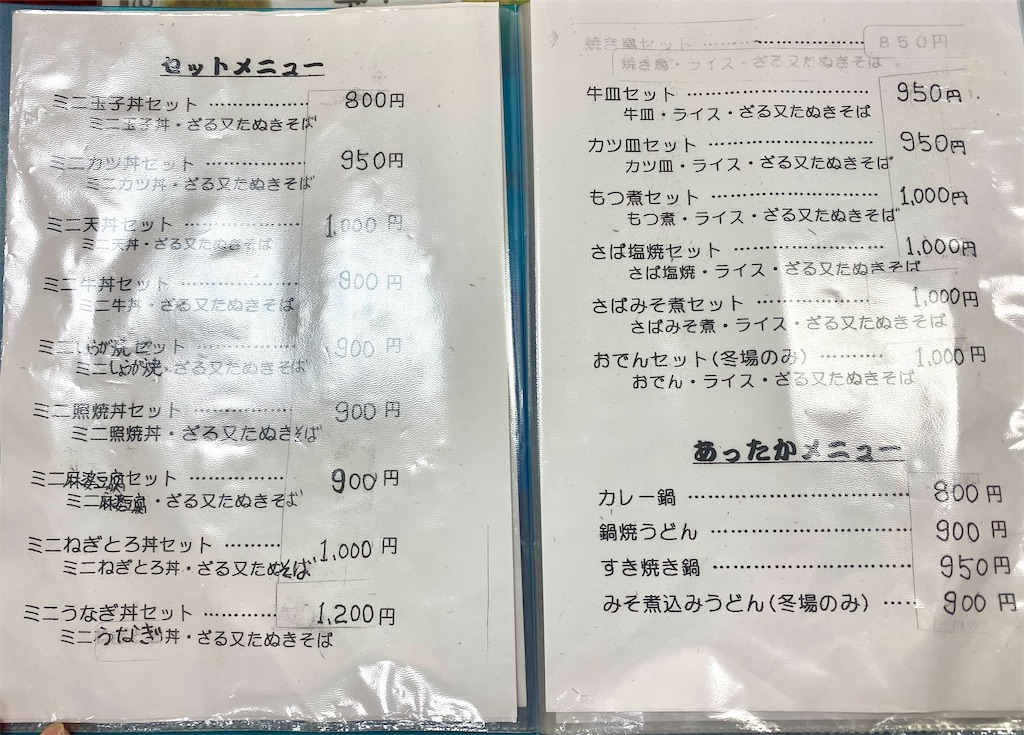 セットメニュー
ミニ玉子丼セット ……………… 800円
ミニ玉子丼・ざる又たぬきそば
ミニカツ丼セット ……………… 950円
ミニカツ丼・ざる又たぬきそば
ミニ天丼セット ……………… 1,000円
ミニ天丼・ざる又たぬきそば
ミニ牛丼セット ……………… 900円
ミニ牛丼・ざる又たぬきそば
ミニしょうが焼セット ……………… 900円
ミニしょうが焼・ざる又たぬきそば
ミニ照焼丼セット ……………… 900円
ミニ照焼丼・ざる又たぬきそば
ミニ麻婆豆腐セット ……………… 900円
ミニ麻婆豆腐・ざる又たぬきそば
ミニねぎとろ丼セット ……… 1,000円
ミニねぎとろ丼・ざる又たぬきそば
ミニうなぎ丼セット ………… 1,200円
ミニうなぎ丼・ざる又たぬきそば
焼き鳥セット ……………………… 850円
焼き鳥・ライス・ざる又たぬきそば
牛皿セット ……………………… 950円
牛皿・ライス・ざる又たぬきそば
カツ皿セット ……………………… 950円
カツ皿・ライス・ざる又たぬきそば
もつ煮セット ……………………… 1,000円
もつ煮・ライス・ざる又たぬきそば
さば塩焼セット ………………… 1,000円
さば塩焼・ライス・ざる又たぬきそば
さばみそ煮セット ……………… 1,000円
さばみそ煮・ライス・ざる又たぬきそば
おでんセット(冬場のみ) ………… 1,000円
おでん・ライス・ざる又たぬきそば
あったかメニュー
カレー鍋 ……………………………… 800円
鍋焼うどん ………………………… 900円
すき焼き鍋 ………………………… 950円
みそ煮込みうどん(冬場のみ) …… 900円